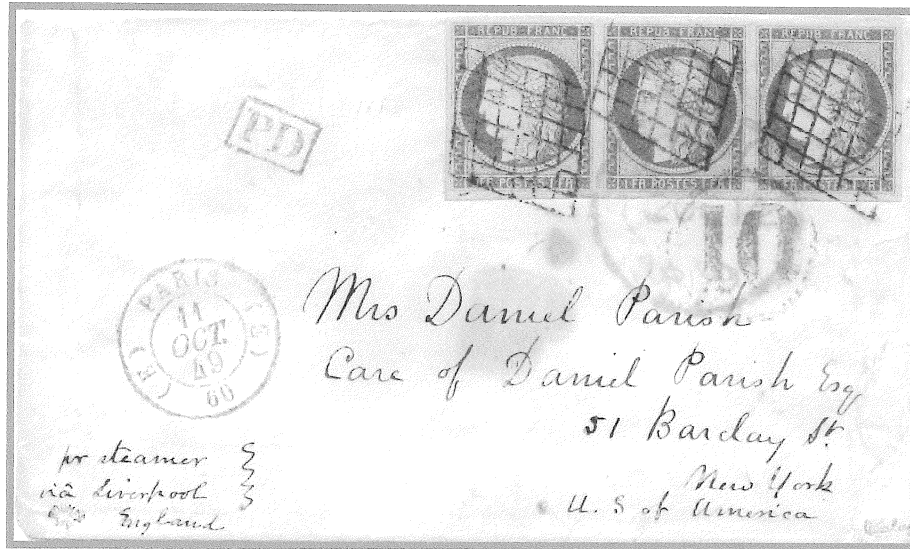 REPUB FRANC REPUB FRANC REPUB FRANC
1 FR POSTES 1 FR 1 FR POSTES 1 FR 1 FR POSTES 1 FR
PD
10
PARIS
11
OCT.
49
60
Mrs Daniel Parish
Care of Daniel Parish Esq
51 Barclay St.
New York
U. S of America
pr steamer
via Liverpool
England